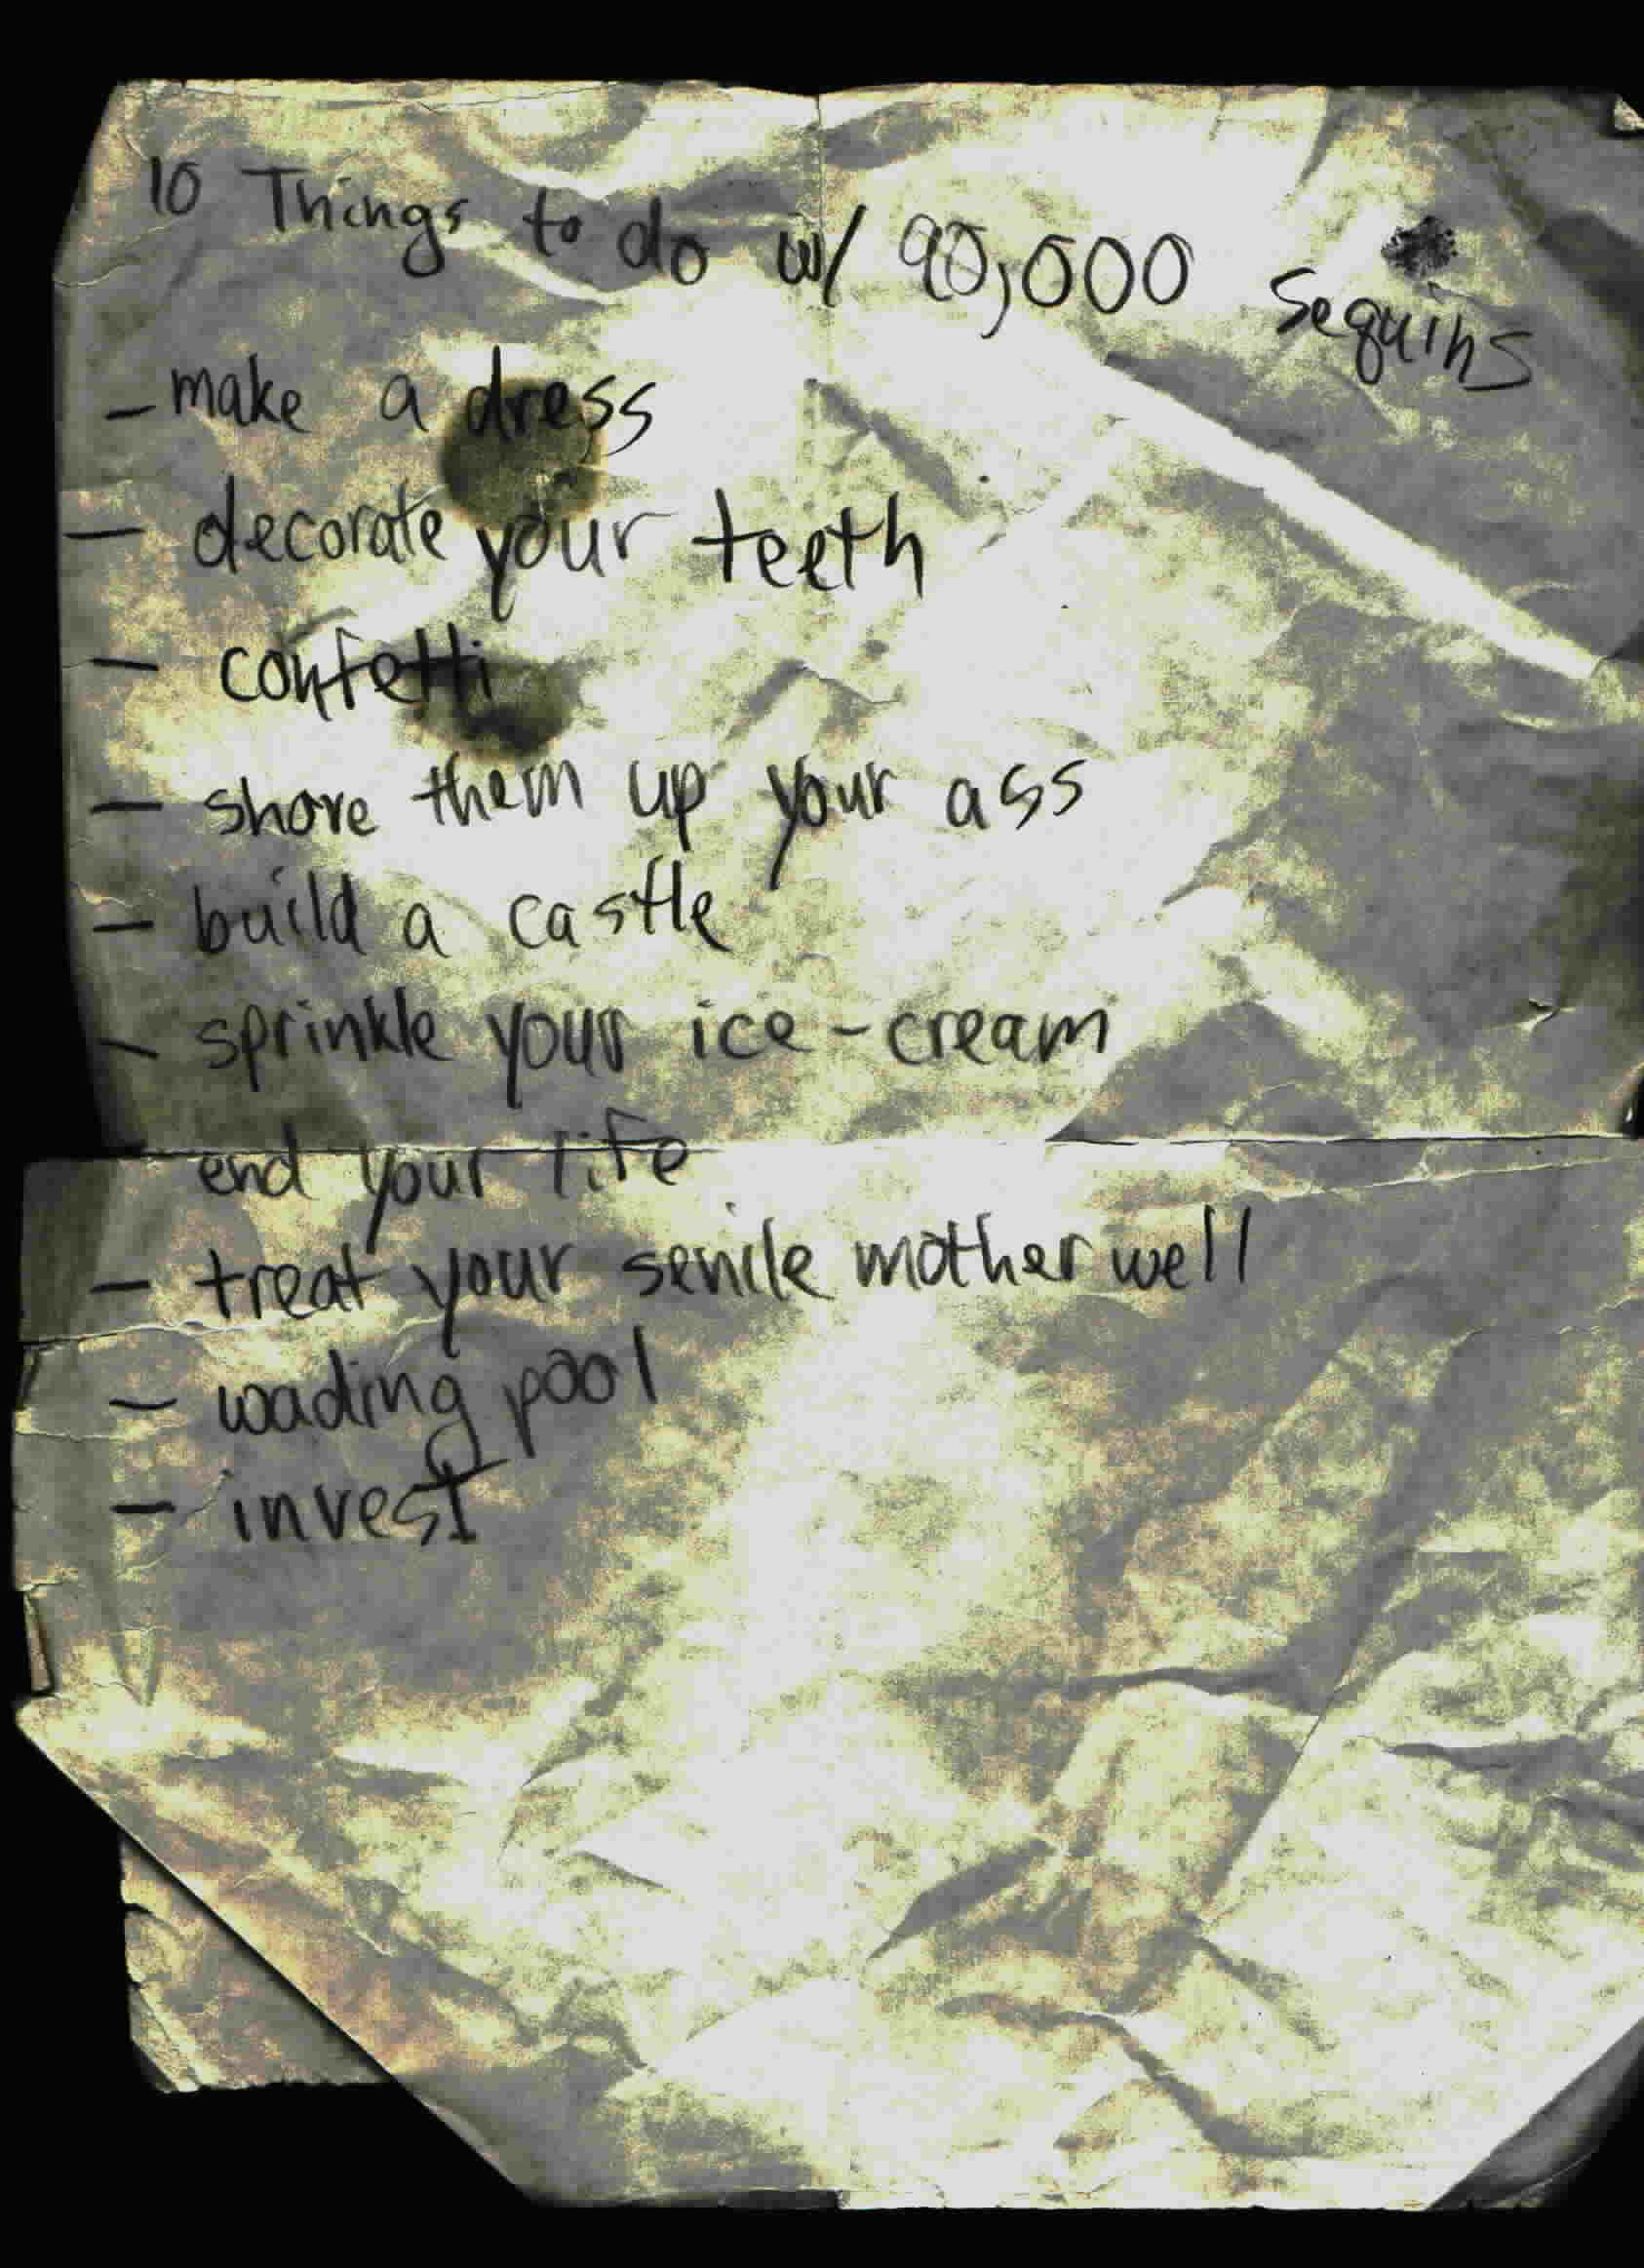 10 Things to do w/ 90,000 sequins
- make a dress
- decorate your teeth
- confetti
- shove them up your ass
- build a castle
- sprinkle your ice-cream
end your life
- treat your senile mother well
- wading pool
- invest